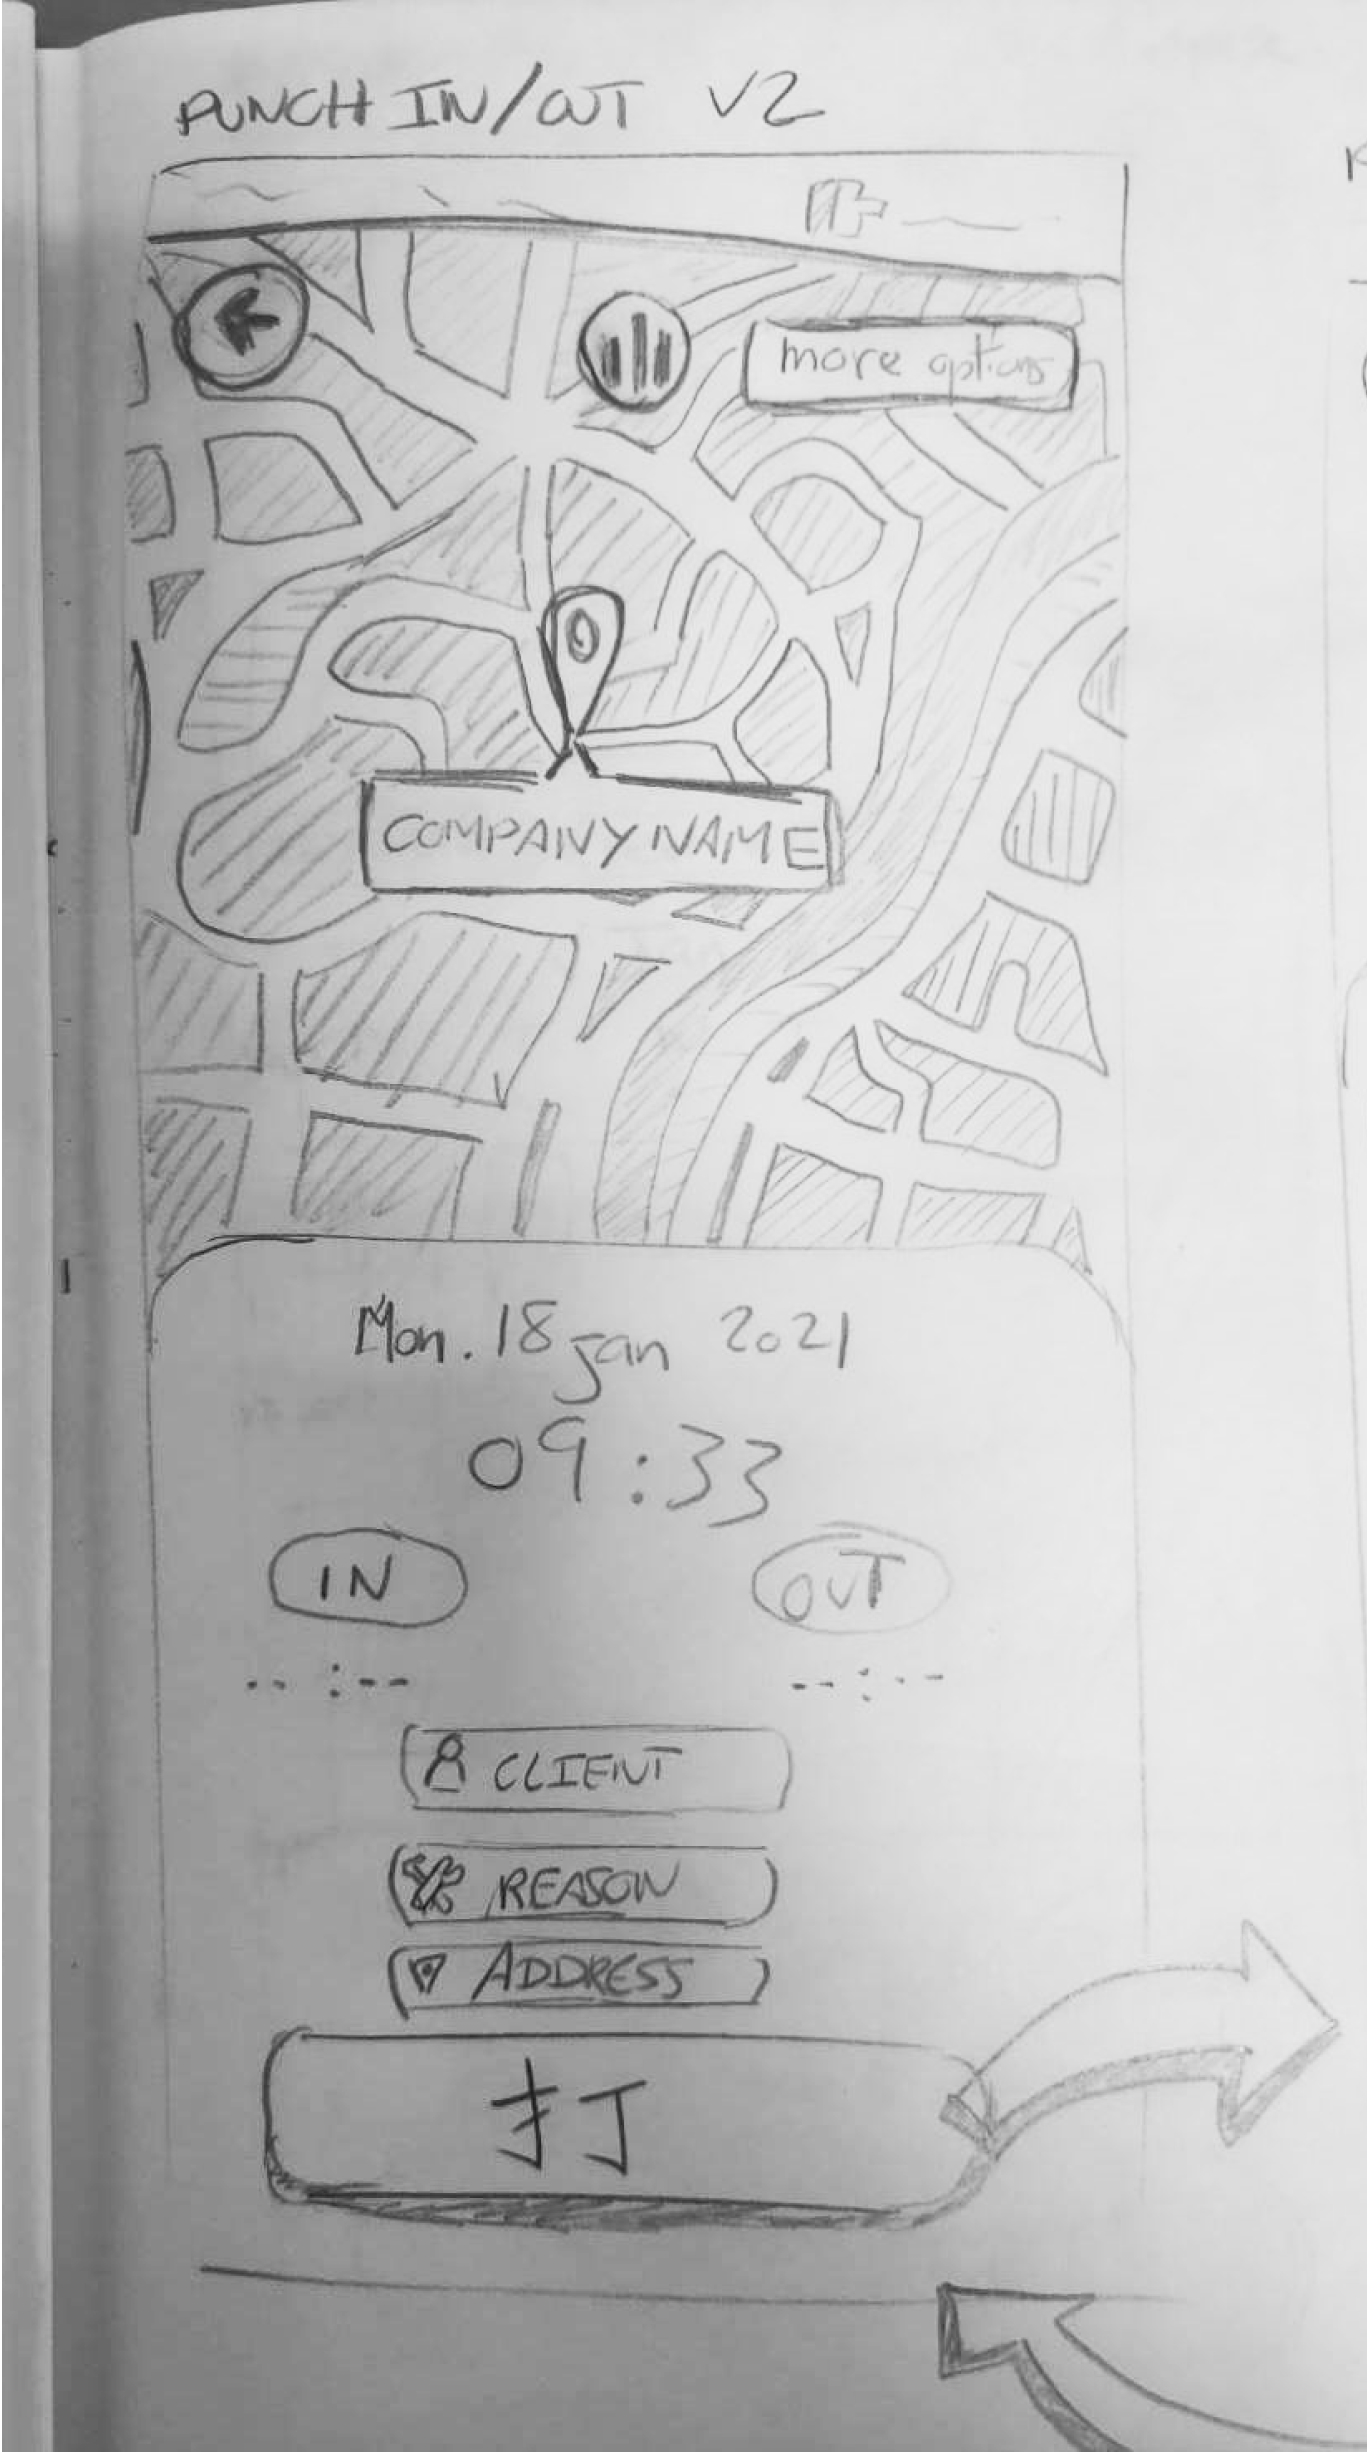 PUNCH IN/OUT V2
more options
COMPANY NAME
Mon. 18 jan 2021
09:33
IN OUT
--:-- --:--
CLIENT
REASON
ADDRESS
打